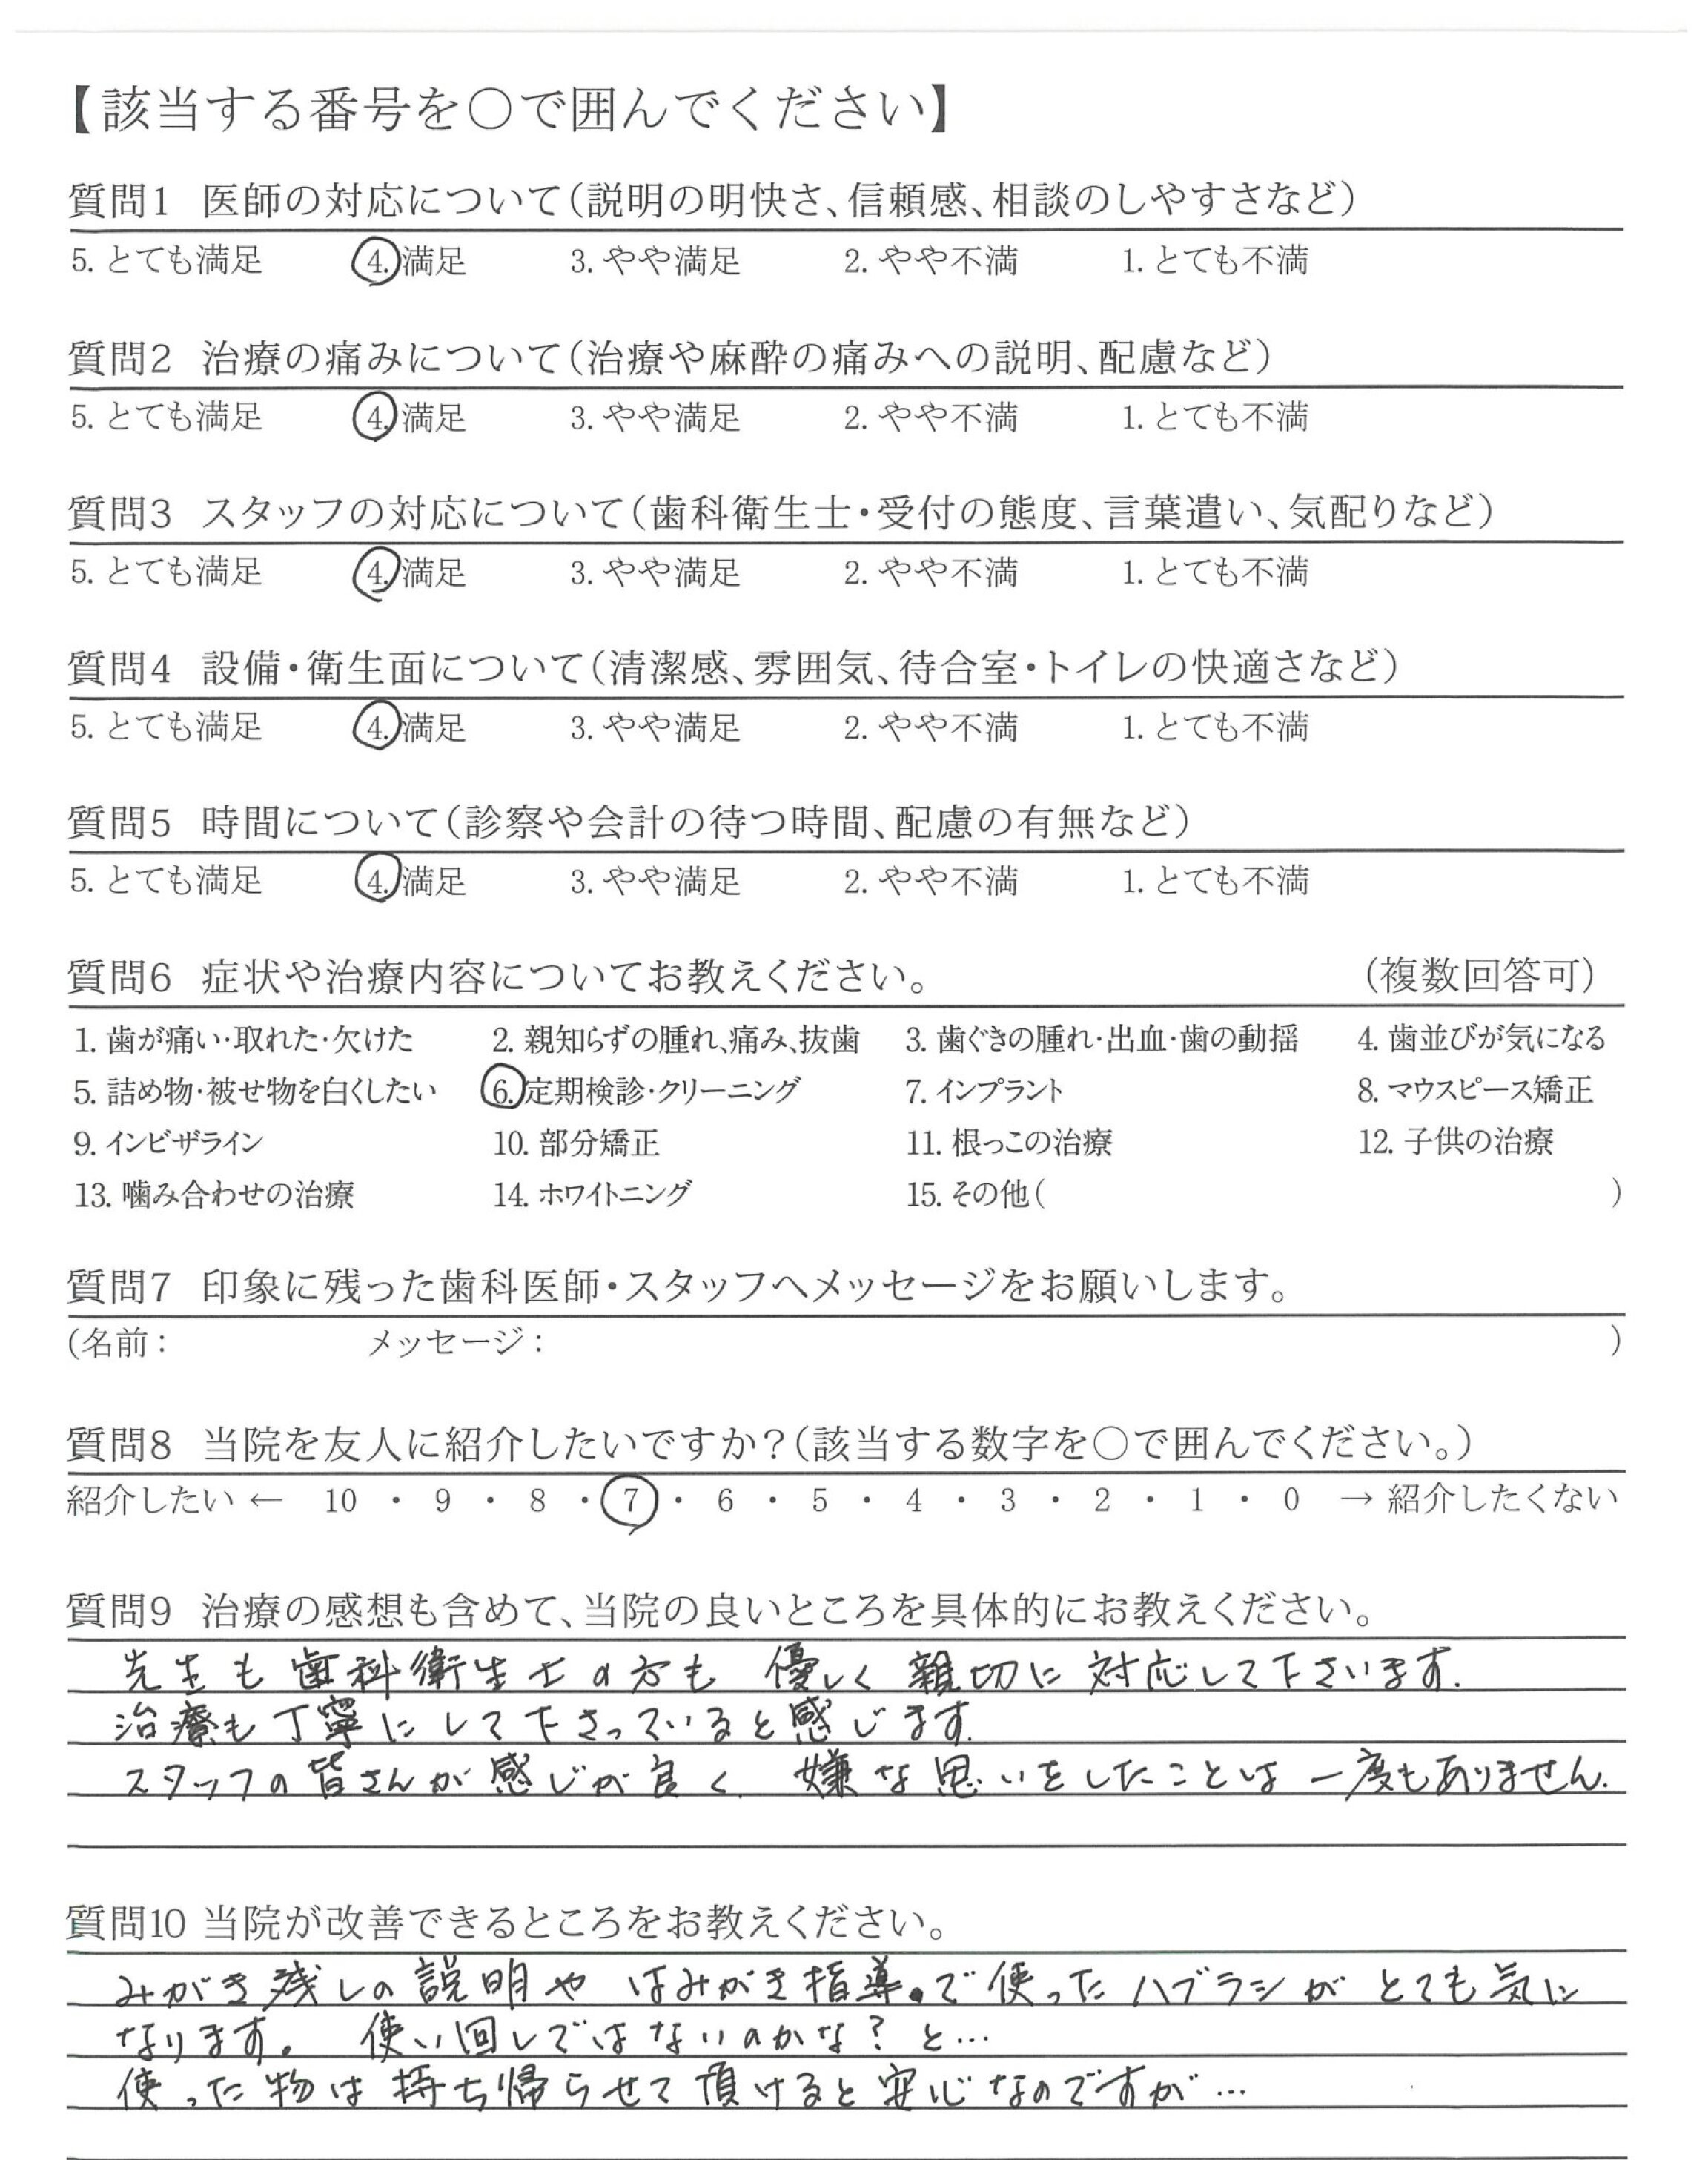 【該当する番号を〇で囲んでください】
質問1 医師の対応について(説明の明快さ、信頼感、相談のしやすさなど)
5. とても満足 4. 満足 3. やや満足 2. やや不満 1. とても不満
質問2 治療の痛みについて(治療や麻酔の痛みへの説明、配慮など)
5. とても満足 4. 満足 3. やや満足 2. やや不満 1. とても不満
質問3 スタッフの対応について(歯科衛生士・受付の態度、言葉遣い、気配りなど)
5. とても満足 4. 満足 3. やや満足 2. やや不満 1. とても不満
質問4 設備・衛生面について(清潔感、雰囲気、待合室・トイレの快適さなど)
5. とても満足 4. 満足 3. やや満足 2. やや不満 1. とても不満
質問5 時間について(診察や会計の待つ時間、配慮の有無など)
5. とても満足 4. 満足 3. やや満足 2. やや不満 1. とても不満
質問6 症状や治療内容についてお教えください。 (複数回答可)
1. 歯が痛い・取れた・欠けた 2. 親知らずの腫れ、痛み、抜歯 3. 歯ぐきの腫れ・出血・歯の動揺 4. 歯並びが気になる
5. 詰め物・被せ物を白くしたい 6. 定期検診・クリーニング 7. インプラント 8. マウスピース矯正
9. インビザライン 10. 部分矯正 11. 根っこの治療 12. 子供の治療
13. 噛み合わせの治療 14. ホワイトニング 15. その他( )
質問7 印象に残った歯科医師・スタッフへメッセージをお願いします。
(名前: メッセージ: )
質問8 当院を友人に紹介したいですか?(該当する数字を〇で囲んでください。)
紹介したい ← 10 ・ 9 ・ 8 ・ 7 ・ 6 ・ 5 ・ 4 ・ 3 ・ 2 ・ 1 ・ 0 → 紹介したくない
質問9 治療の感想も含めて、当院の良いところを具体的にお教えください。
先生も歯科衛生士の方も 優しく親切に対応して下さいます.
治療も丁寧にして下さっていると感じます.
スタッフの皆さんが感じが良く、嫌な思いをしたことは一度もありません.
質問10 当院が改善できるところをお教えください。
みがき残しの説明や はみがき指導で使ったハブラシが とても気に
なります。 使い回しではないのかな?と…
使った物は持ち帰らせて頂けると安心なのですが…